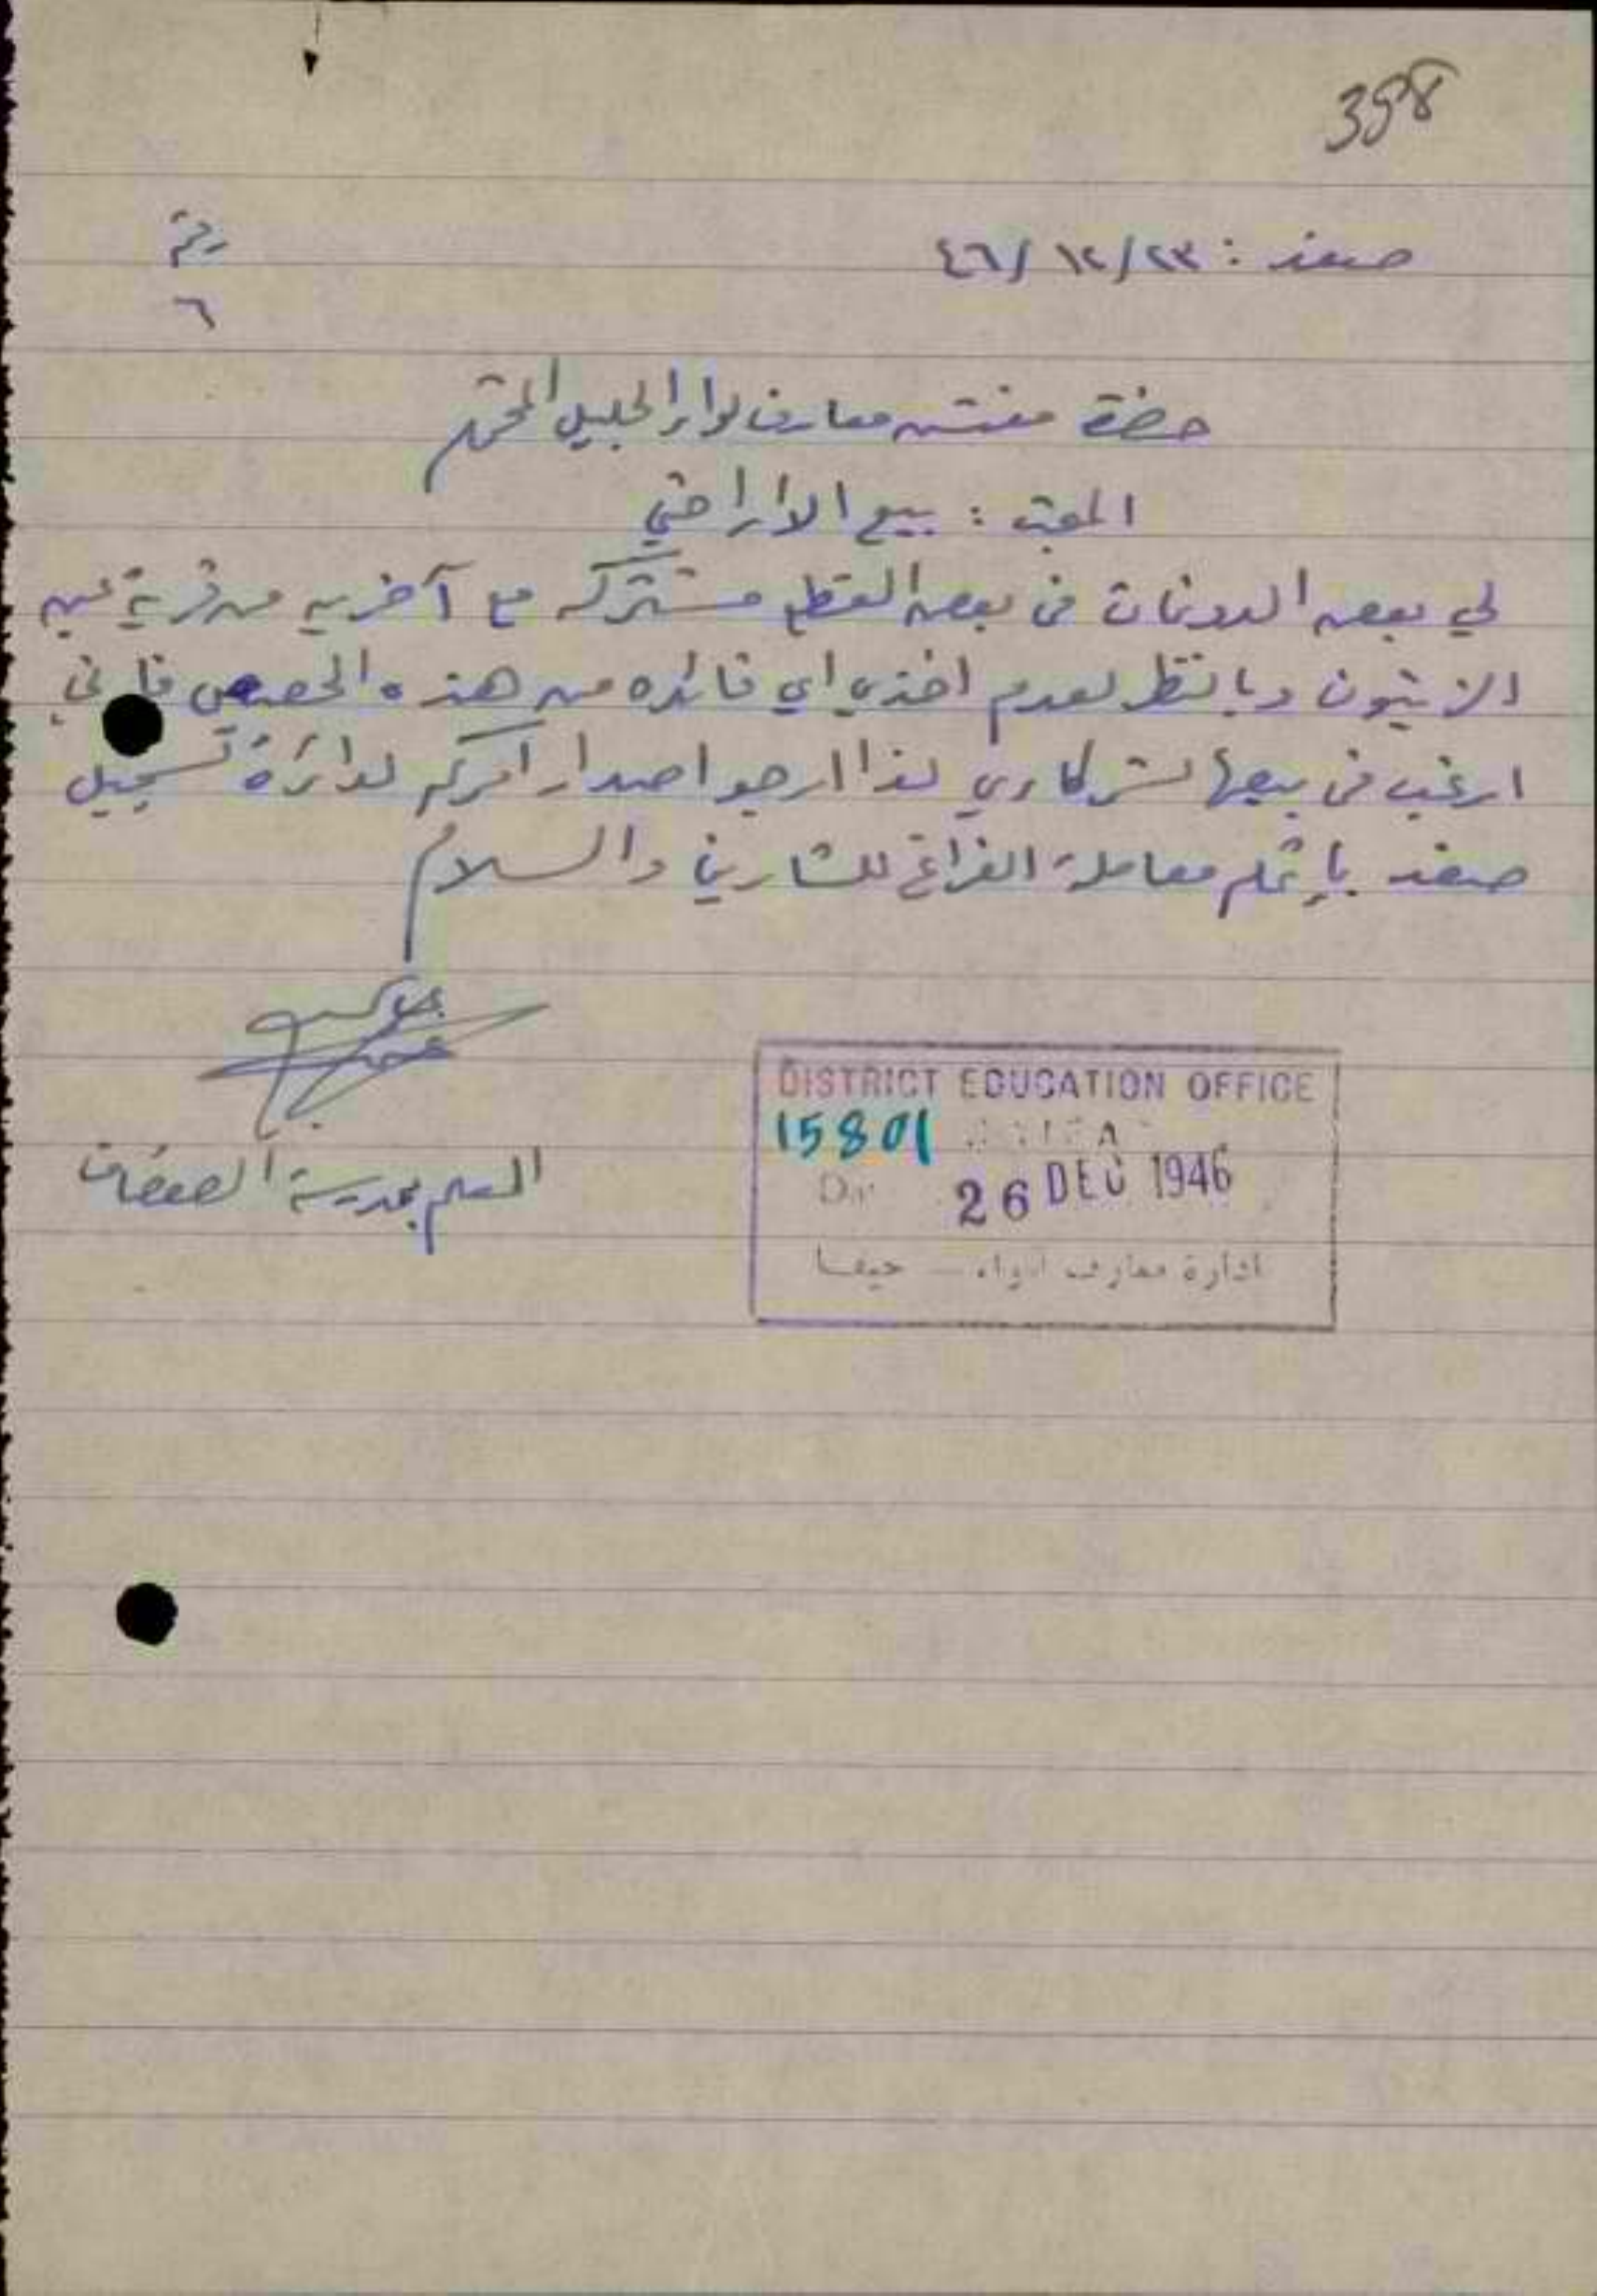 398
صفد : ٢٣/١٢/٤٦
رقم
٦
حضرة مفتش معارف لواء الجليل المحترم
المبحث : بيع الاراضي
لي بعض الدونمات في بعض القطع مشتركه مع آخرين من قرية عين
الزيتون وبالنظر لعدم اخذي اي فائده من هذه الحصص فاني
ارغب في بيعها لشركاءي لذا ارجو اصدار امركم لدائرة تسجيل
صفد باتمام معاملة الفراغ للشارين والسلام
المعلم بمدرسة الصفصاف
DISTRICT EDUCATION OFFICE
15801
26 DEC 1946
ادارة معارف اللواء - حيفا